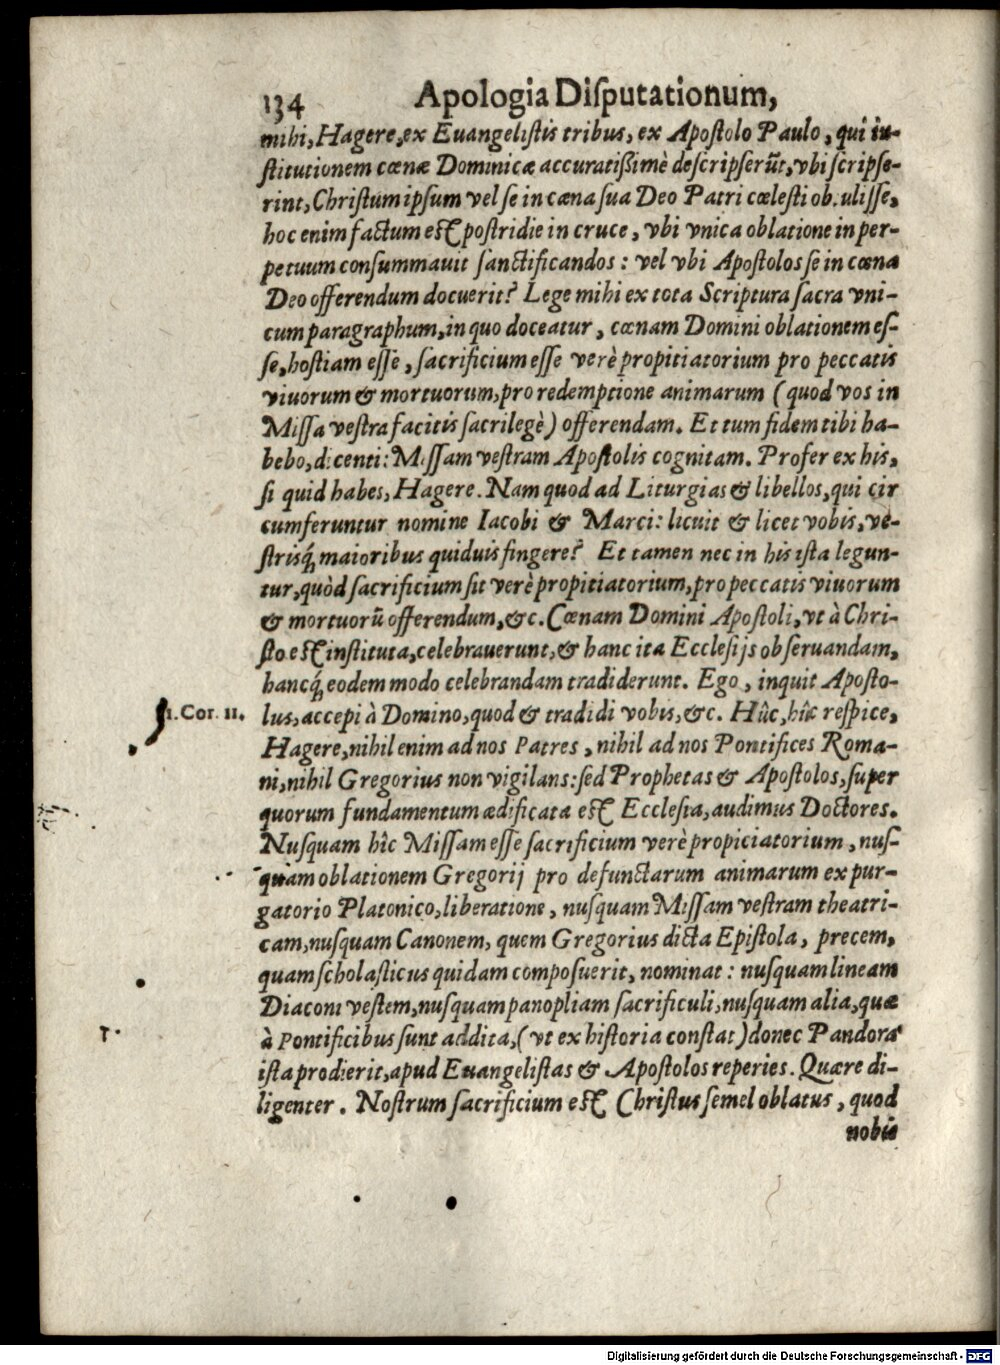 134 Apologia Diſputationum,
mihi, Hagere, ex Euangeliſtis tribus, ex Apoſtolo Paulo, qui in-
ſtitutionem cœnæ Dominicæ accuratißimè deſcripſerūt, vbi ſcripſe-
rint, Chriſtum ipſum vel ſe in cœna ſua Deo Patri cœleſti obtuliſſe,
hoc enim factum eſt poſtridie in cruce, vbi vnica oblatione in per-
petuum conſummauit ſanctificandos: vel vbi Apoſtolos ſe in cœna
Deo offerendum docuerit? Lege mihi ex tota Scriptura ſacra vni-
cum paragraphum, in quo doceatur, cœnam Domini oblationem eſ-
ſe, hoſtiam eſſe, ſacrificium eſſe verè propitiatorium pro peccatis
viuorum & mortuorum, pro redemptione animarum (quod vos in
Miſſa veſtra facitis ſacrilegè) offerendam. Et tum fidem tibi ha-
bebo, dicenti: Miſſam veſtram Apoſtolis cognitam. Profer ex his,
ſi quid habes, Hagere. Nam quod ad Liturgias & libellos, qui cir
cumferuntur nomine Iacobi & Marci: licuit & licet vobis, ve-
ſtrisq́ maioribus quiduis fingere? Et tamen nec in his iſta legun-
tur, quòd ſacrificium ſit verè propitiatorium, pro peccatis viuorum
& mortuorū offerendum, &c. Cœnam Domini Apoſtoli, vt à Chri-
ſto eſt inſtituta, celebrauerunt, & hanc ita Eccleſijs obſeruandam,
hancq́ eodem modo celebrandam tradiderunt. Ego, inquit Apoſto-
1. Cor. 11.
lus, accepi à Domino, quod & tradidi vobis, &c. Hûc, hîc reſpice,
Hagere, nihil enim ad nos Patres, nihil ad nos Pontifices Roma-
ni, nihil Gregorius non vigilans: ſed Prophetas & Apoſtolos, ſuper
quorum fundamentum ædificata eſt Eccleſia, audimus Doctores.
Nuſquam hîc Miſſam eſſe ſacrificium verè propiciatorium, nuſ-
quam oblationem Gregorij pro defunctarum animarum ex pur-
gatorio Platonico, liberatione, nuſquam Miſſam veſtram theatri-
cam, nuſquam Canonem, quem Gregorius dicta Epiſtola, precem,
quam ſcholaſticus quidam compoſuerit, nominat: nuſquam lineam
Diaconi veſtem, nuſquam panopliam ſacrificuli, nuſquam alia, quæ
à Pontificibus ſunt addita, (vt ex hiſtoria conſtat) donec Pandora
iſta prodierit, apud Euangeliſtas & Apoſtolos reperies. Quære di-
ligenter. Noſtrum ſacrificium eſt Chriſtus ſemel oblatus, quod
nobis
Digitalisierung gefördert durch die Deutsche Forschungsgemeinschaft - DFG